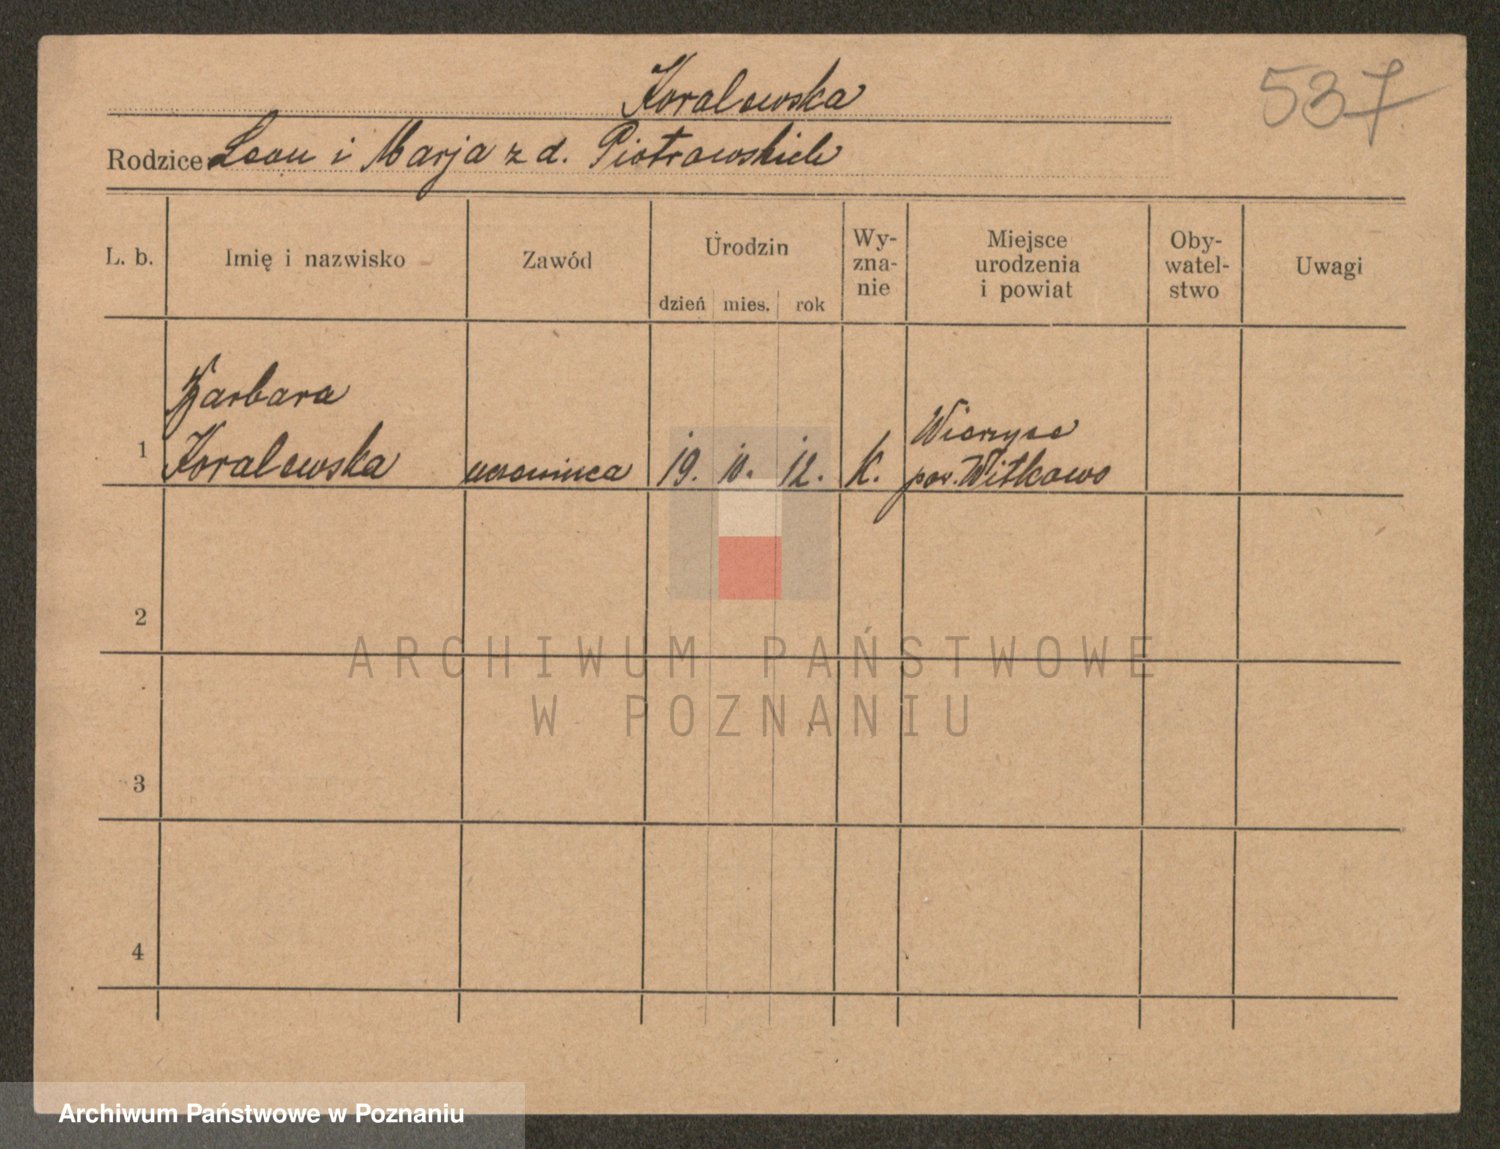 Koralewska
537
Rodzice Leon i Marja z d. Piotrowskich
L. b.
Imię i nazwisko
Zawód
Urodzin
dzień mies. rok
Wy-
zna-
nie
Miejsce
urodzenia
i powiat
Oby-
watel-
stwo
Uwagi
1
Barbara
Koralewska
uczennica
19. 10. 12.
K.
Wierzyce
pow. Witkowo
2
3
4
ARCHIWUM PAŃSTWOWE
W POZNANIU
Archiwum Państwowe w Poznaniu